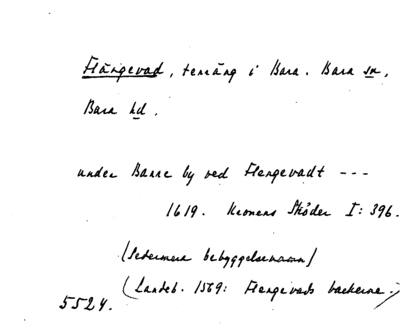 Flängevad, terräng i Bara. Bara sn,
Bara hd.
under Barre by ved Flengevadt ---
1619. Kronens Skøder I: 396.
(Sedermera bebyggelsenamn)
(Landeb. 1569: Flengevads backerne.)
5524.